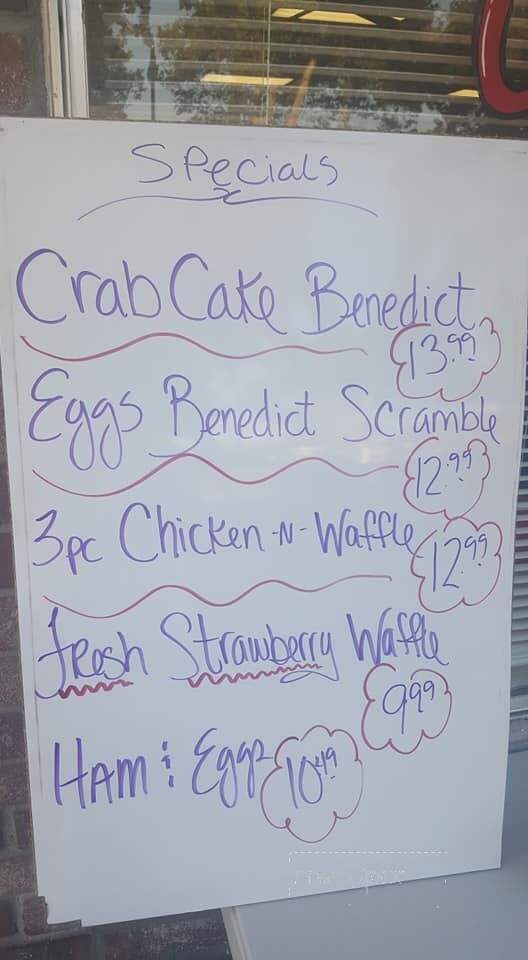 Specials
Crab Cake Benedict
13.99
Eggs Benedict Scramble
12.99
3pc Chicken -N- Waffle
12.99
fresh Strawberry Waffle
9.99
Ham & Eggs 10.49